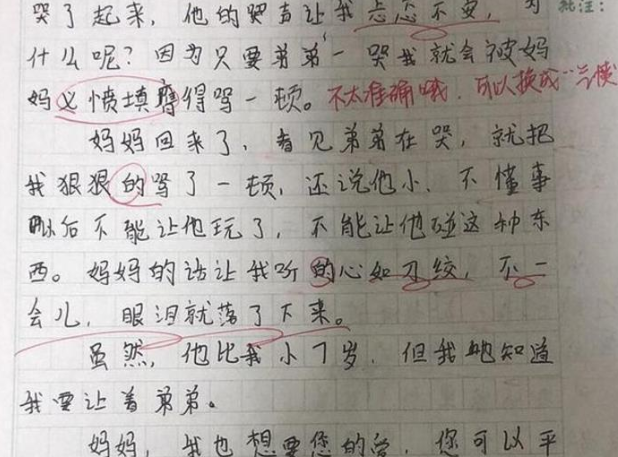 哭了起来，他的哭声让我忐忑不安，为
批注：
什么呢？因为只要弟弟一哭我就会被妈
妈义愤填膺得骂一顿。不太准确哦，可以换成
妈妈回来了，看见弟弟在哭，就把
我狠狠的骂了一顿，还说他小，不懂事
以后不能让他玩了，不能让他碰这种东
西。妈妈的话让我听的心如刀绞，不一
会儿，眼泪就落了下来。
虽然，他比我小7岁，但我也知道
我要让着弟弟。
妈妈，我也想要您的爱，您可以平